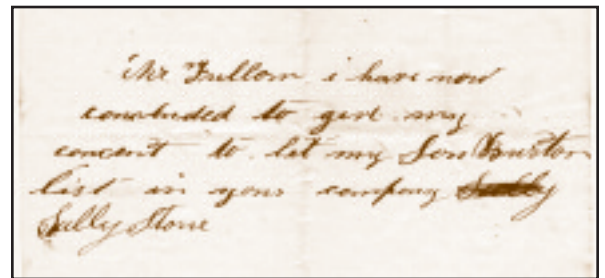 Mr Fullom i have now
concluded to give my
concent to let my Son Burton
list in your company Sally
Sally Stone